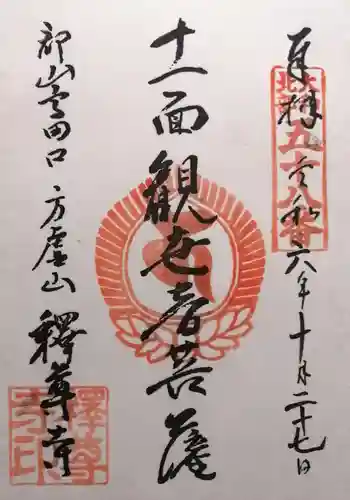 奉拝 令和六年十月二十七日
十一面観世音菩薩
郡山高田口 方虚山 釋尊寺
五十八番
釋尊寺印